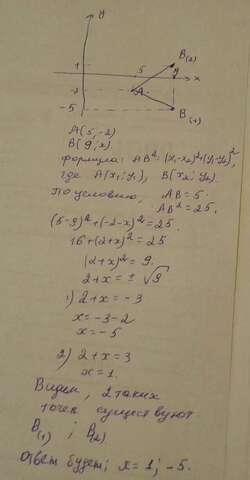 y
B(2)
1
5
9
x
-2
A
-5
B(1)
A(5,-2)
B(9;x).
формула: AB²=(x₁-x₂)²+(y₁-y₂)²,
где A(x₁;y₁), B(x₂;y₂).
По условию, AB=5.
AB²=25.
(5-9)²+(-2-x)²=25.
16+(2+x)²=25
(2+x)²=9.
2+x=±√9
1) 2+x=-3
x=-3-2
x=-5
2) 2+x=3
x=1.
Видим, 2 таких
точек существуют
B(1) ; B(2)
Ответ будет; x=1; -5.